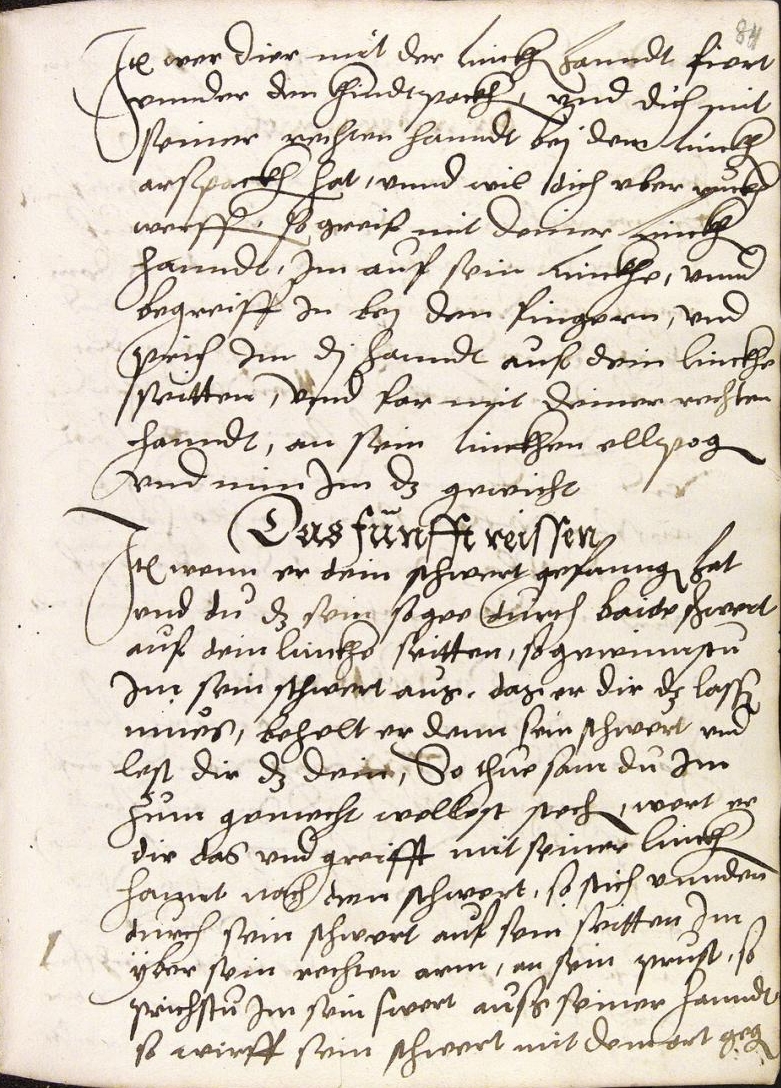 84
Itē wer dier mit der linckh hanndt fiert
unnder den hindtpackh, und dich mit
seiner rechten hanndt bej dem linckh
arspackh hat, unnd wil dich uber ruckh
werff, so greiff mit deiner linckh
hanndt, Im auf sein linckhe, unnd
begreiff In bej den fingern, und
prich Im dj hanndt auf dein linckhe
seitten, und far mit deiner rechten
hanndt, an sein linckhen ellpog
und nim Im dz gewicht
Das fünfft reissen
Itē wenn er dein schwert gefanng hat
und du dz sein so gee durch baide schwert
auf dein linckhe seitten, so gewinnstu
Im sein schwert aus, das er dir dz lassn
mues, behelt er denn sein schwert und
lest dir dz dein, So thue sam du Im
zum gemecht wellest stech, wert er
dir das und greifft mit seiner linckh
hannt nach dem schwert, so stich unnden
durch sein schwert auf sein seitten Im
yber sein rechten arm, an sein prust, so
prichstu Im sein swert auss seiner hanndt
so wirff sein schwert mit dem ort geg